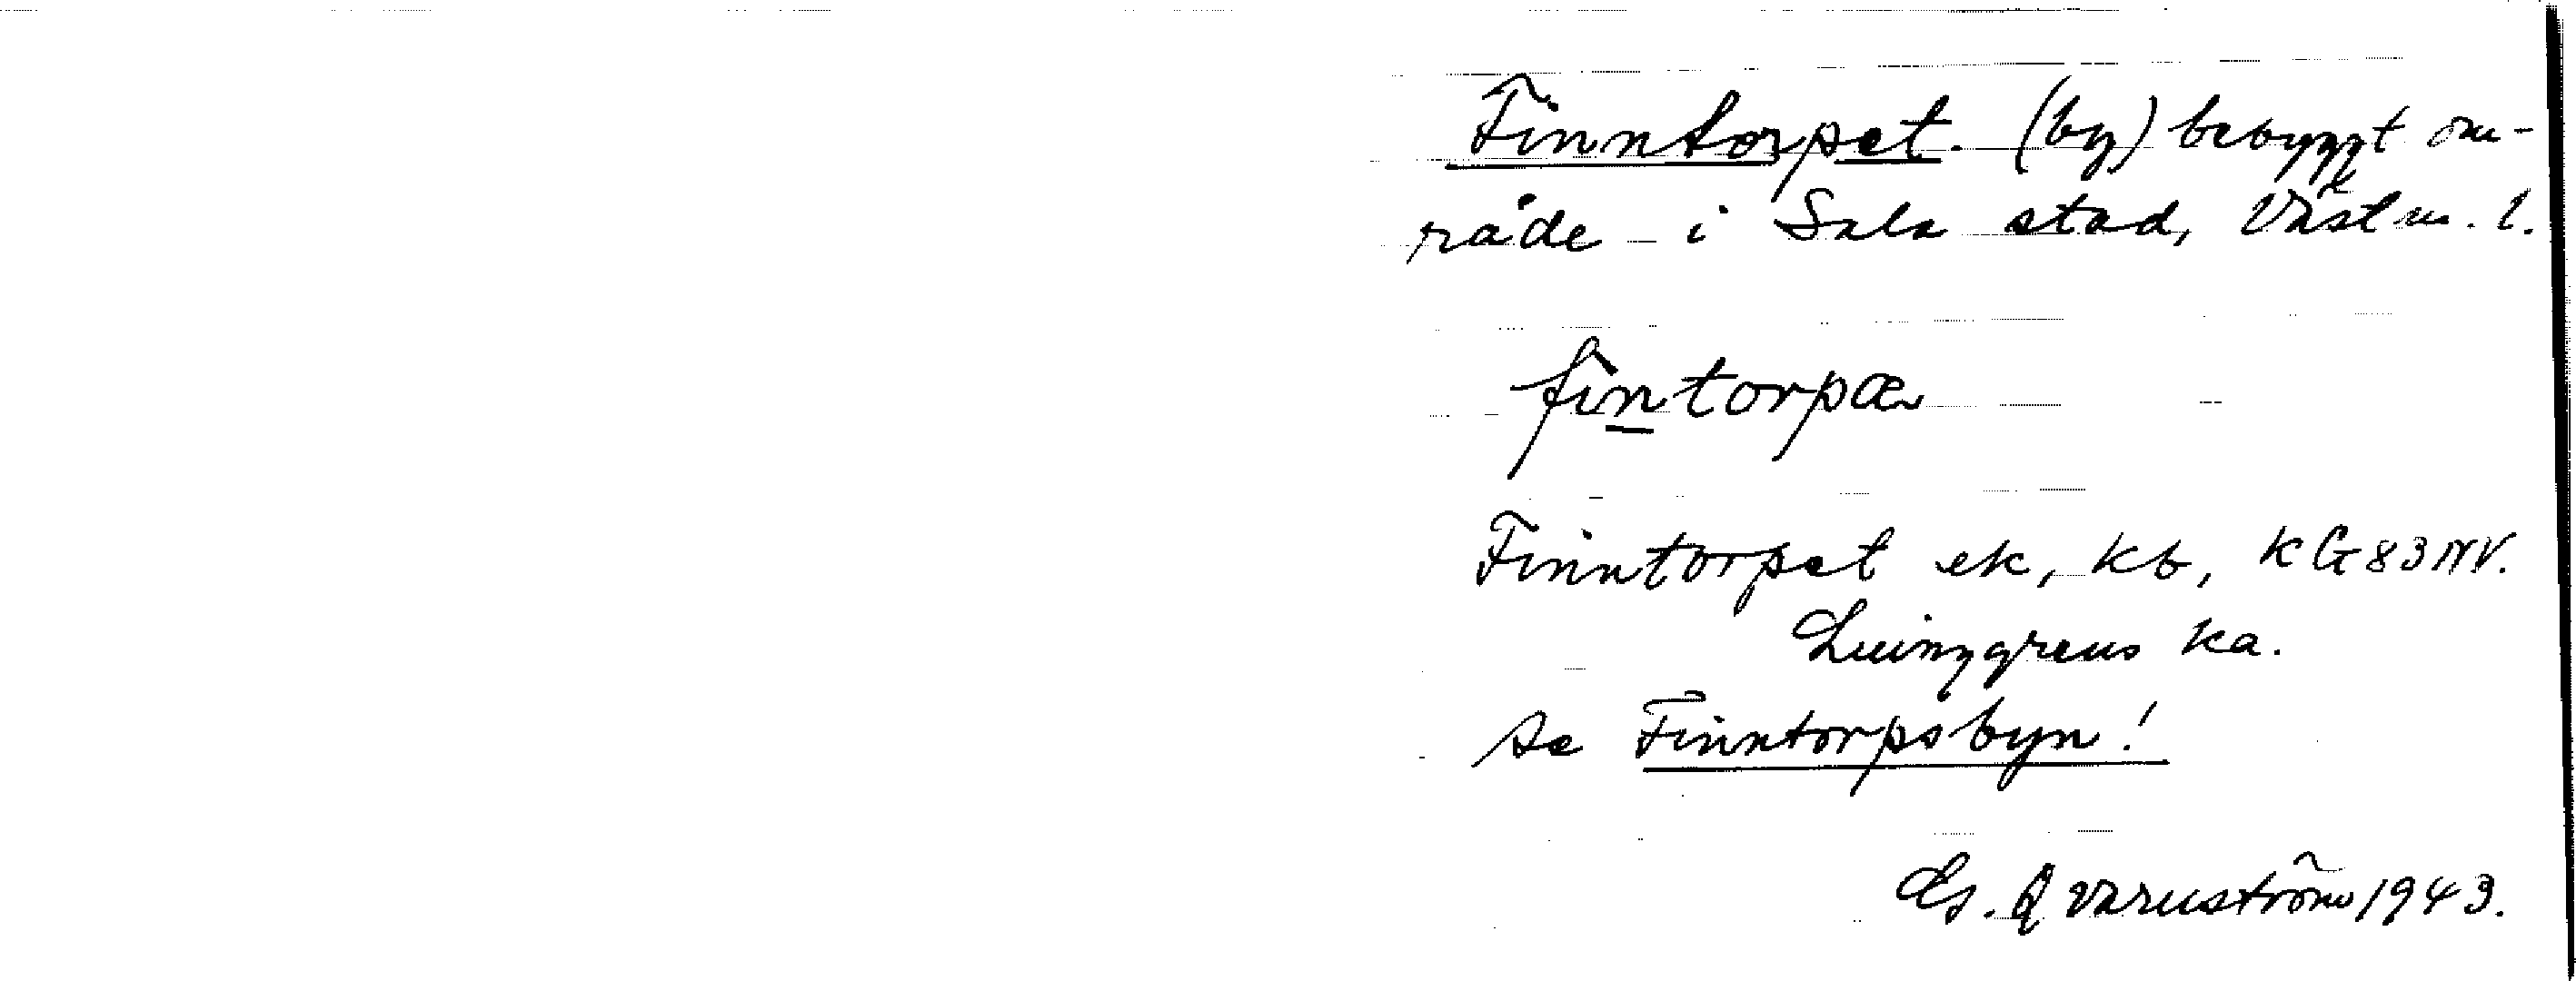 Finntorpet. (by) bebyggt om-
råde i Sala stad, Västm. l.
fintorpæ
Finntorpet ek, kb, KG83NV.
Ljunggrens ka.
se Finntorpsbyn!
Qvarnström 1943.